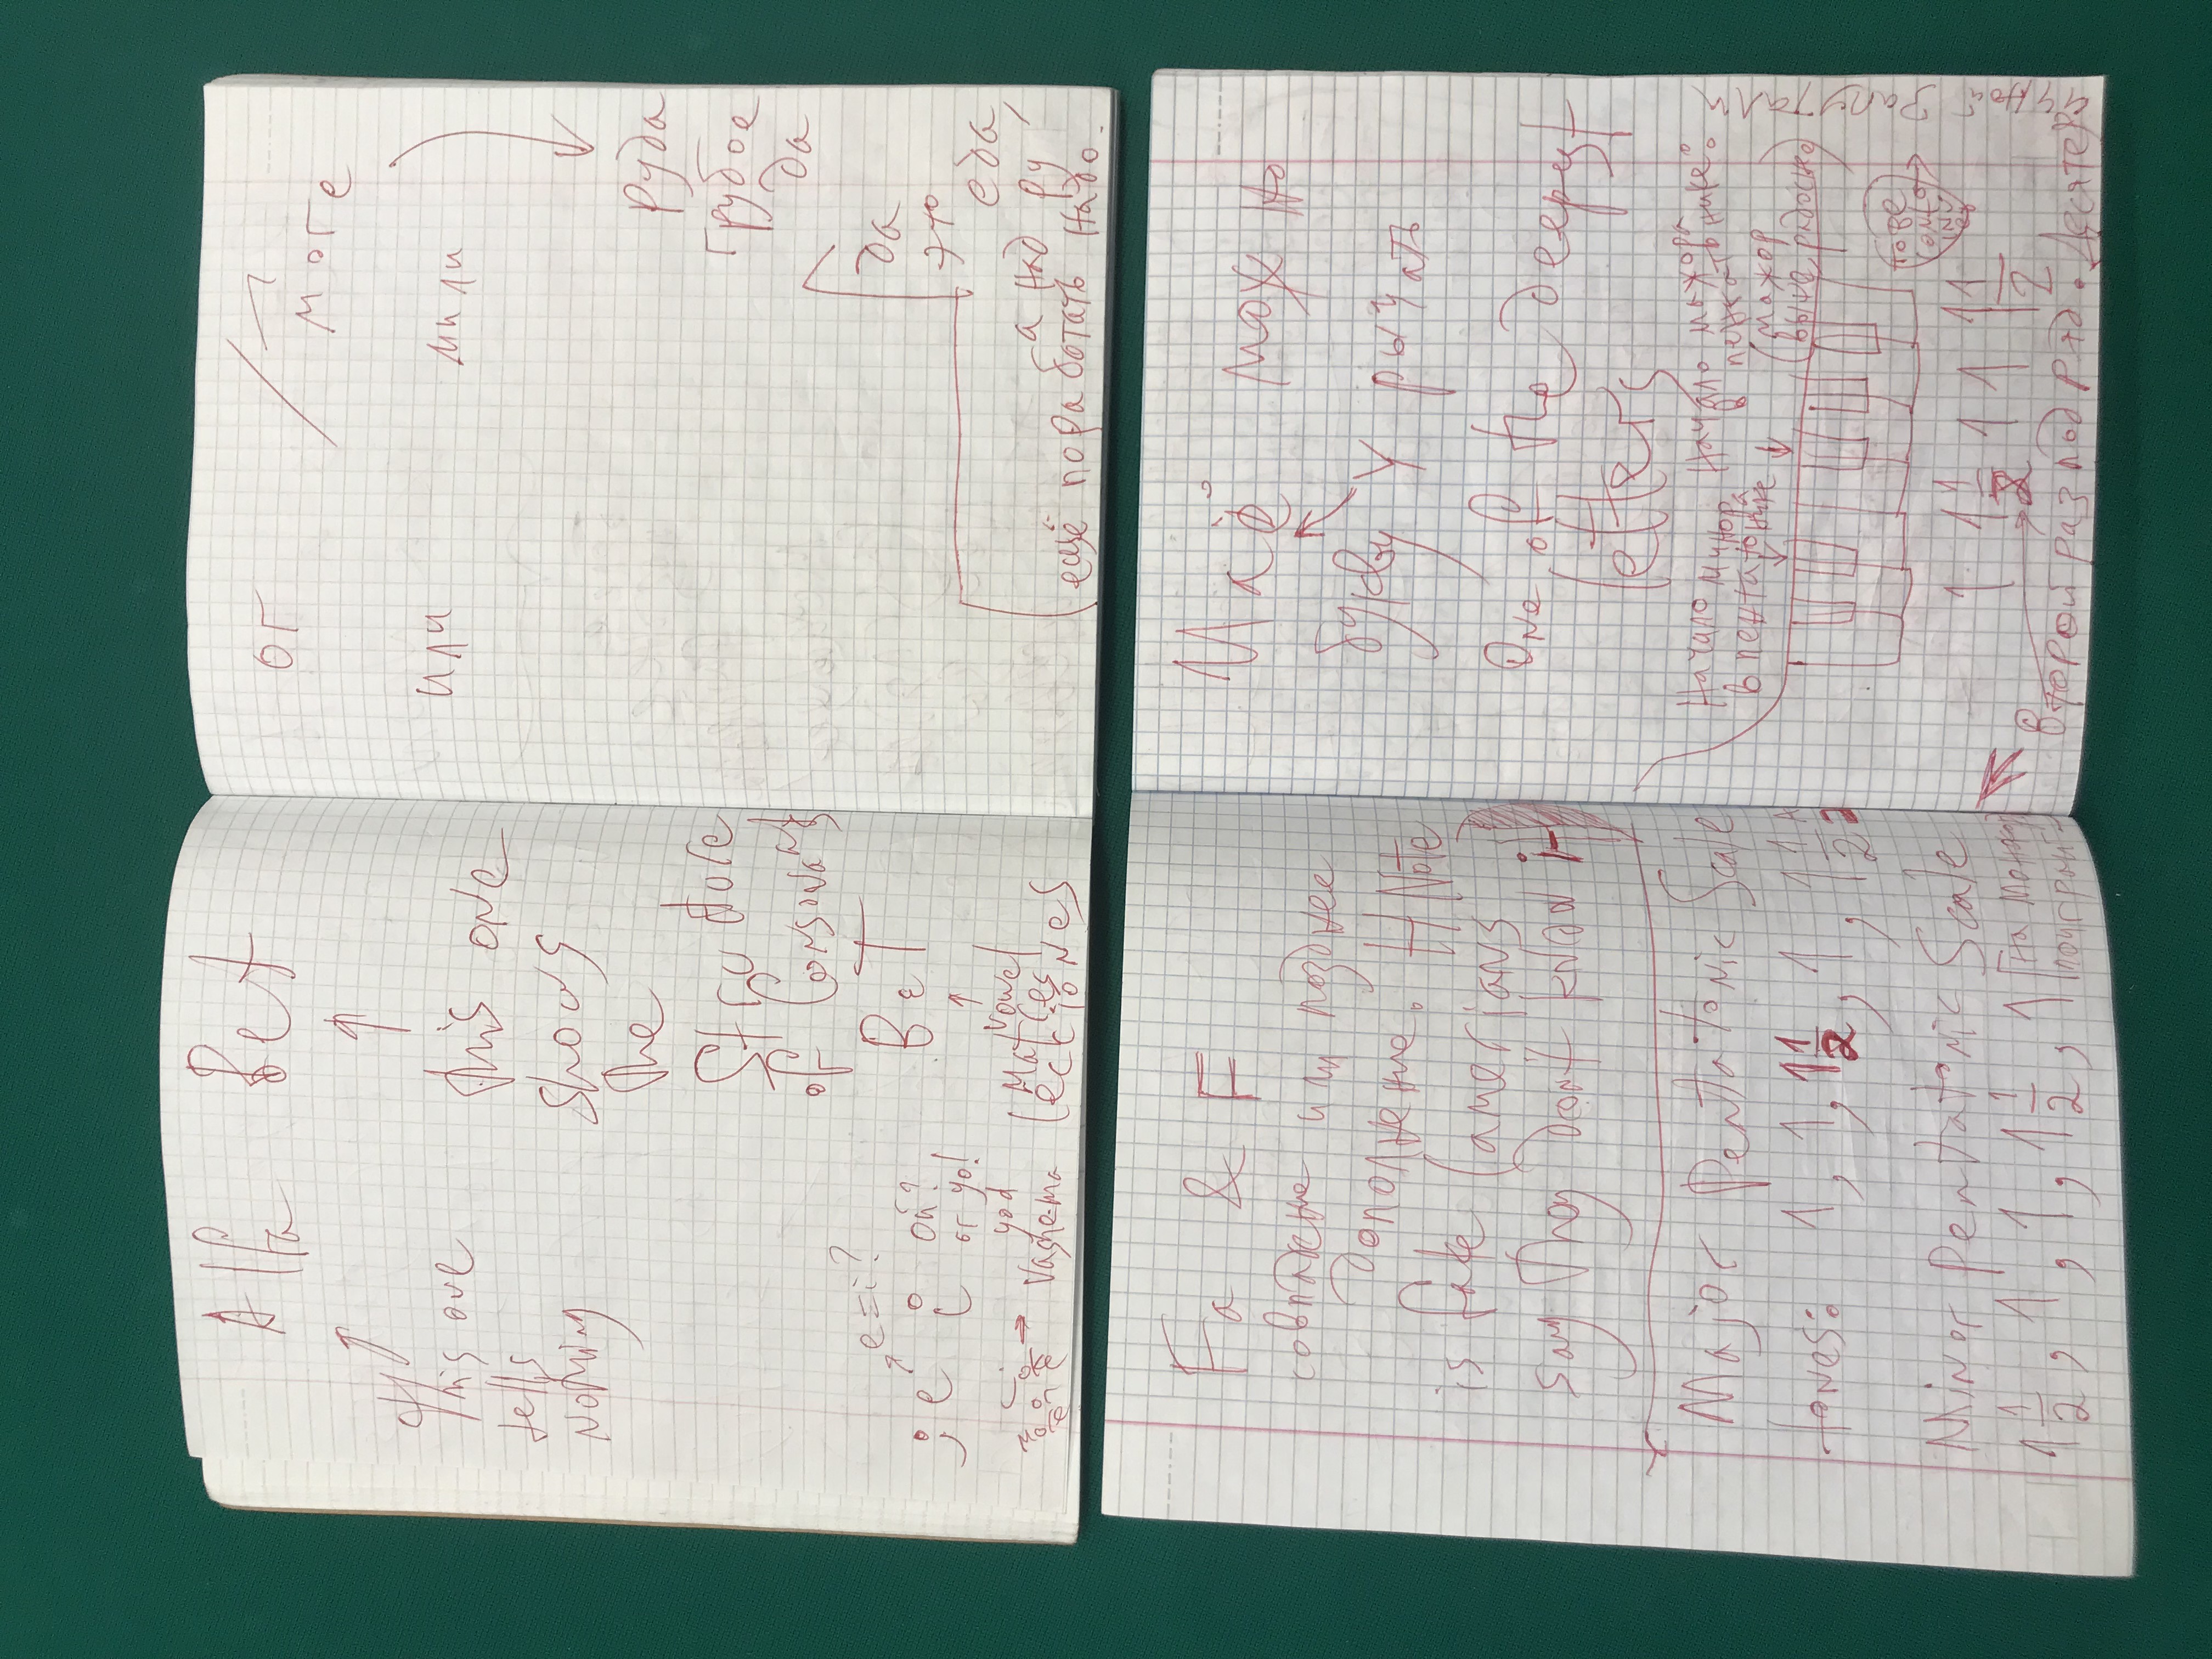 Alfa Bet
This one
tells
Nothing
this one
shows
the
Structure
of Consonants
e=i?
je i ой?
or yo!
yod
BeT
vowel
Matces
(ecciones
joke
or
more
Vashe-ma
or / more
или мили
руда
грубое
да
да
это
еда,
а над ру
ещё поработать надо.
Fa & F
совпадение или позднее
дополнение. H Note
is fake (amerians
say they don't know it)
Major Pentatonic Scale
tones: 1, 1, 1 1/2, 1, 1 1/2
Minor Pentatonic Scale
1 1/2, 1, 1, 1 1/2, 1 [на монохор
поиграйт
можно
букву Y рычать
One of the deepest
letters
Начало минора
в пентатонике
Начало мажора
в пентатонике:
(мажор
выше, радостно)
1 1 1/2 1 1 1 1/2
второй раз подряд. Десятери
чной запутали